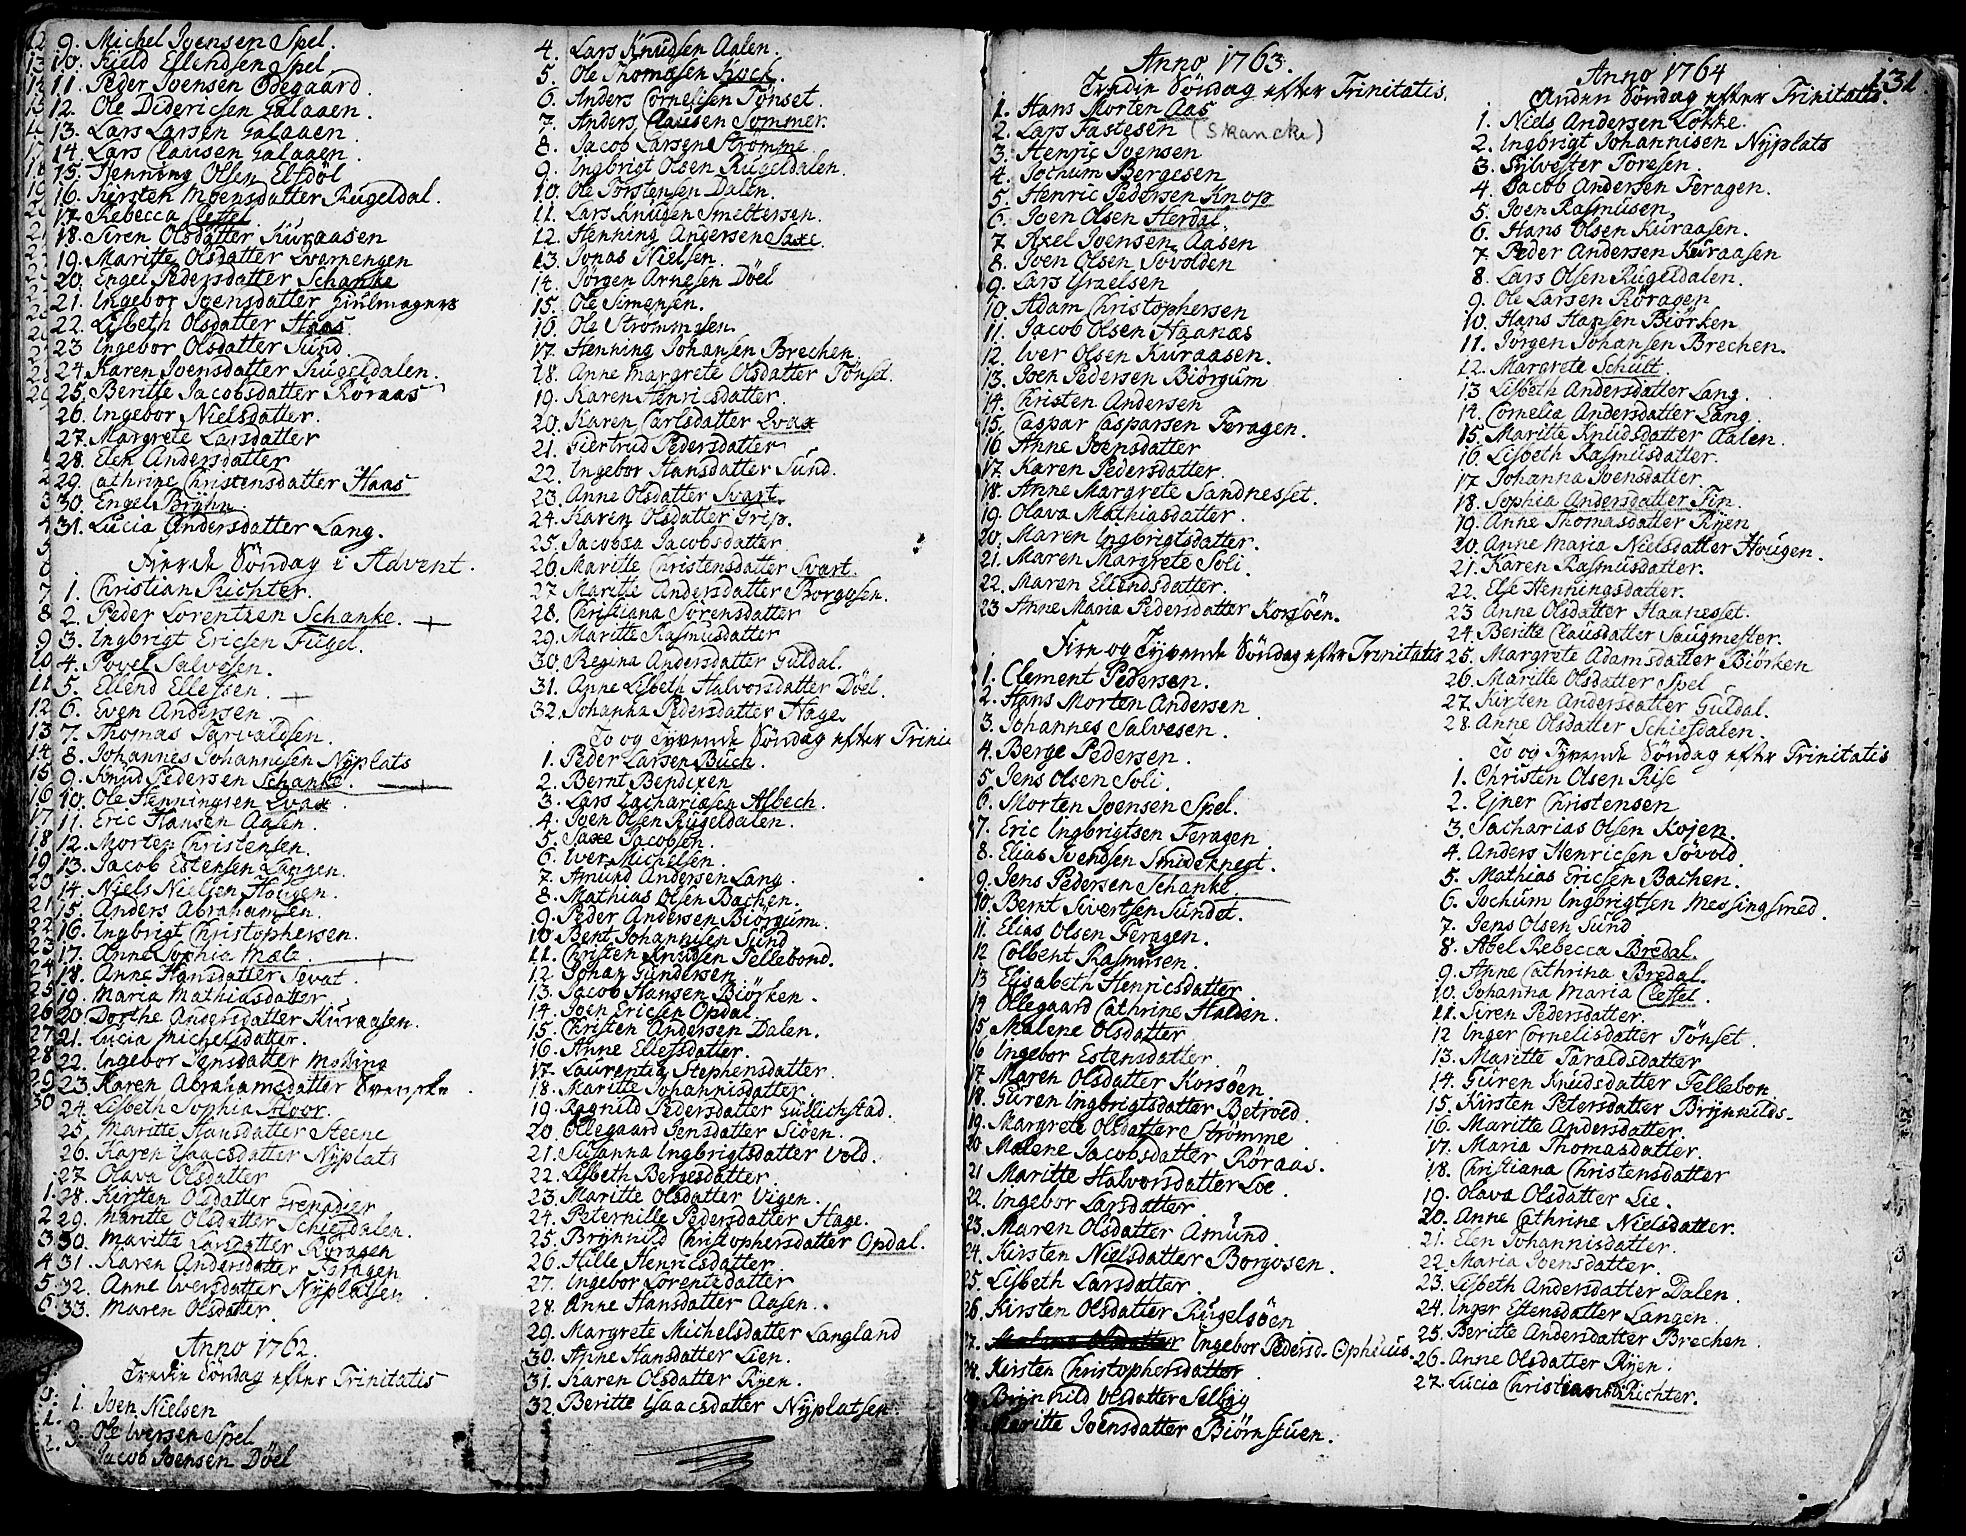 9. Michel Joensen Spel.
10. Kield Ellendsen Spel
11. Peder Joensen Ödegaard.
12. Ole Didericsen Galaaen.
13. Lars Larsen Galaaen.
14. Lars Clausen Galaaen.
15. Henning Olsen Elfdöl
16. Kirsten Moensdatter Rugeldal.
17. Rebecca Cleffel
18. Siren Olsdatter Kuraasen
19. Maritte Olsdatter Qvarnengen
20. Engel Pedersdatter Schanke
21. Ingebor Joensdatter Hiulmagers
22. Lisbeth Olsdatter Haas
23 Ingebor Olsdatter Sund.
24. Karen Joensdatter Rugeldalen.
25. Beritte Jacobsdatter Röraas
26. Ingebor Nielsdatter.
27. Margrete Larsdatter
28. Elen Andersdatter
29. Cathrine Christensdatter Haas
30. Engel Bryhn
31. Lucia Andersdatter Lang.
Fierde Söndag i Advent.
1. Christian Richter.
2. Peder Lorentzen Schanke.
3. Ingbrigt Ericsen Fugel.
4. Povel Salvesen.
5. Ellend Ellefsen.
6. Even Andersen.
7. Thomas Tarvaldsen.
8. Johannes Johannisen Nyplats
9. Knud Pedersen Schanke.
10. Ole Henningsen Qvax.
11. Eric Hansen Aasen.
12. Morten Christensen.
13. Jacob Estensen Langen.
14. Niels Nielsen Hoegen.
15. Anders Abrahamsen.
16. Ingbrigt Christophersen.
17. Anne Sophia Matz.
18. Anne Hansdatter Tevat.
19. Maria Mathiasdatter.
20. Dorthe Andersdatter Kuraasen.
21. Lucia Michelsdatter.
22. Ingebor Jensdatter Mohling
23. Karen Abrahamsdatter Svenske
24. Lisbeth Sophia Floor.
25. Maritte Hansdatter Steene
26. Karen Isaacsdatter Nyplats
27. Olava Olsdatter
28. Kirsten Olsdatter Grenadier
29. Maritte Olsdatter Schiefdalen.
30. Maritte Larsdatter Röragen
31. Karen Andersdatter Röragen
32. Anne Iversdatter Nyplatsen
33. Maren Olsdatter.
Anno 1762.
Tredie Söndag efter Trinitatis
1. Joen Nielsen
Ole Iversen Spel.
3. Jacob Joensen Döel
4. Lars Knudsen Aalen.
5. Ole Thomasen Kock.
6. Anders Cornelisen Tönset.
7. Anders Clausen Sommer.
8. Jacob Larsen Strömme.
9. Ingbrigt Olsen Rugeldalen.
10. Ole Torstensen Dalen.
11. Lars Knudsen Smeltersen.
12. Henning Andersen Saxe.
13. Jonas Nielsen.
14. Jörgen Arnesen Döel
15. Ole Simensen.
16. Ole Strömmesen.
17. Henning Johansen Brechen.
18. Anne Margrete Olsdatter Tönset.
19. Karen Henricsdatter.
20. Karen Carlsdatter Qvax
21. Giertrud Pedersdatter
22. Ingebor Hansdatter Sund.
23. Anne Olsdatter Svart.
24. Karen Olsdatter Grip.
25. Jacobsa Jacobsdatter
26. Maritte Christensdatter Svart.
27. Maritte Andersdatter Borgosen.
28. Christiana Sörensdatter
29. Maritte Rasmusdatter
30. Regina Andersdatter Guldal.
31. Anne Lisbeth Halvorsdatter Döel.
32. Johanna Pedersdatter Hage
To og Tyvende Söndag efter Trini
1. Peder Larsen Buch.
2. Bernt Bendixen
3. Lars Zachariasen Albech.
4. Joen Olsen Rugeldalen.
5. Saxe Jacobsen.
6. Iver Michelsen.
7. Amund Andersen Lang.
8. Mathias Olsen Bachen.
9. Peder Andersen Biörgum.
10. Bent Johannisen Sund
11. Christen Knudsen Tellebond.
12. Johan Gundersen
13. Jacob Hansen Biörken.
14. Joen Ericsen Opdal
15. Christen Andersen Dalen.
16. Anne Ellefsdatter.
17. Laurentia Stephensdatter.
18. Maritte Johannisdatter
19. Ragnild Pedersdatter Gullichstad.
20. Ollegaard Jensdatter Siöen.
21. Susanna Ingbrigtsdatter Vold.
22. Lisbeth Bergesdatter
23. Maritte Olsdatter Vigen.
24. Peternille Pedersdatter Hage.
25. Brynnild Christophersdatter Opdal.
26. Hille Henricsdatter.
27. Ingebor Lorentzdatter
28. Anne Hansdatter Aasen.
29. Margrete Michelsdatter Langland
30. Anne Hansdatter Lien.
31. Karen Olsdatter Ryen.
32. Beritte Isaacsdatter Nyplatsen.
Anno 1763.
Tredie Söndag efter Trinitatis.
1. Hans Morten Aas
2. Lars Fastesen (Skancke)
3. Henric Joensen
4. Jochum Bergesen
5. Henric Pedersen Knop
6. Joen Olsen Herdal
7. Axel Joensen Aasen
8. Joen Olsen Sovolden
9. Lars Israelsen
10. Adam Christophersen
11. Jacob Olsen Haanæs
12. Iver Olsen Kuraasen.
13. Joen Pedersen Biörgum
14. Christen Andersen
15. Caspar Casparsen Feragen.
16 Anne Joensdatter
17. Karen Pedersdatter.
18. Anne Margrete Sandnesset.
19. Olava Mathiasdatter.
20. Maren Ingbrigtsdatter.
21. Maren Margrete Soli.
22. Maren Ellendsdatter.
23. Anne Maria Pedersdatter Korsöen.
Fire og Tyvende Söndag efter Trinitatis
1. Clement Pedersen.
2. Hans Morten Andersen
3. Johannes Salvesen.
4. Berge Pedersen.
5. Jens Olsen Soli.
6. Morten Joensen Spel.
7. Eric Ingbrigtsen Feragen
8. Elias Svendsen Smideknegt.
9. Jens Pedersen Schanke.
10. Bernt Sivertsen Sundet.
11. Elias Olsen Feragen.
12 Colbent Rasmusen.
13 Elisabeth Henricsdatter
14 Ollegaard Cathrine Haldin.
15 Malene Olsdatter
16 Ingebor Estensdatter
17. Maren Olsdatter Korsöen
18. Guren Ingbrigtsdatter Betroed.
19. Margrete Olsdatter Strömme
20 Malene Jacobsdatter Röraas.
21 Maritte Halvorsdatter Loe.
22. Ingebor Larsdatter
23. Maren Olsdatter Amund.
24. Kirsten Nielsdatter Borgosen.
25. Lisbeth Larsdatter
26. Kirsten Olsdatter Rugelsöen
27. Malene Olsdatter Ingebor Pedersd. Ophuus.
28. Kirsten Christophersdatter
Brynnild Olsdatter Selbyg
Maritte Joensdatter Biörnstuen.
131.
Anno 1764
Anden Söndag efter Trinitatis.
1. Niels Andersen Lökke.
2. Ingbrigt Johannisen Nyplats
3. Sylvester Toresen.
4. Jacob Andersen Feragen.
5. Joen Rasmusen
6. Hans Olsen Kuraasen.
7. Peder Andersen Kuraasen
8. Lars Olsen Rugeldalen.
9. Ole Larsen Röragen
10. Hans Hansen Biörken
11. Jörgen Johansen Brechen.
12. Margrete Schült.
13 Lisbeth Andersdatter Lang.
14. Cornelia Andersdatter Lang.
15. Maritte Knudsdatter Aalen.
16. Lisbeth Rasmusdatter.
17 Johanna Joensdatter.
18. Sophia Andersdatter Fin.
19. Anne Thomasdatter Ryen
20. Anne Maria Nielsdatter Hougen.
21. Karen Rasmusdatter.
22. Else Henningsdatter.
23 Anne Olsdatter Haanesset.
24. Beritte Clausdatter Saugmester.
25. Margrete Adamsdatter Biörken
26. Maritte Olsdatter Spel
27. Kirsten Andersdatter Guldal.
28. Anne Olsdatter Schiefdalen.
To og Tyvende Söndag efter Trinitatis
1. Christen Olsen Rise
2. Ejner Christensen
3. Sacharias Olsen Kojen.
4. Anders Henricsen Sövold.
5. Mathias Ericsen Bachen.
6. Jochum Ingbrigtsen Messingsmed.
7. Jens Olsen Sund
8. Abel Rebecca Bredal.
9. Anne Cathrina Bredal.
10. Johanna Maria Cleffel.
11. Siren Pedersdatter.
12 Inger Cornelisdatter Tönset.
13. Maritte Taraldsdatter
14. Guren Knudsdatter Tellebon
15. Kirsten Petersdatter Brynnilds-
16. Maritte Andersdatter.
17. Maria Thomasdatter.
18. Christiana Christensdatter
19. Olava Olsdatter Lie.
20. Anne Cathrine Nielsdatter.
21. Elen Johannisdatter.
22. Maria Joensdatter.
23. Lisbeth Andersdatter Dalen.
24. Inger Estensdatter Langen.
25. Beritte Andersdatter Brechen.
26. Anne Olsdatter Ryen.
27. Lucia Christians Richter.